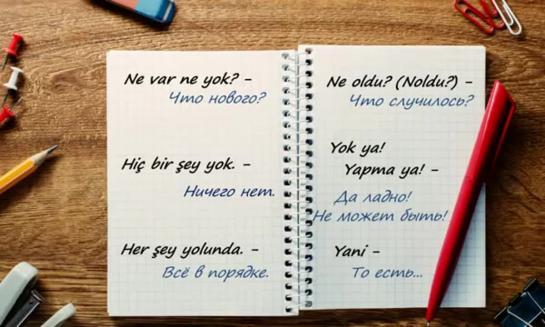 Ne var ne yok? –
Что нового?
Hiç bir şey yok. –
Ничего нет.
Her şey yolunda. –
Всё в порядке.
Ne oldu? (Noldu?) –
Что случилось?
Yok ya!
Yapma ya! –
Да ладно!
Не может быть!
Yani –
То есть...